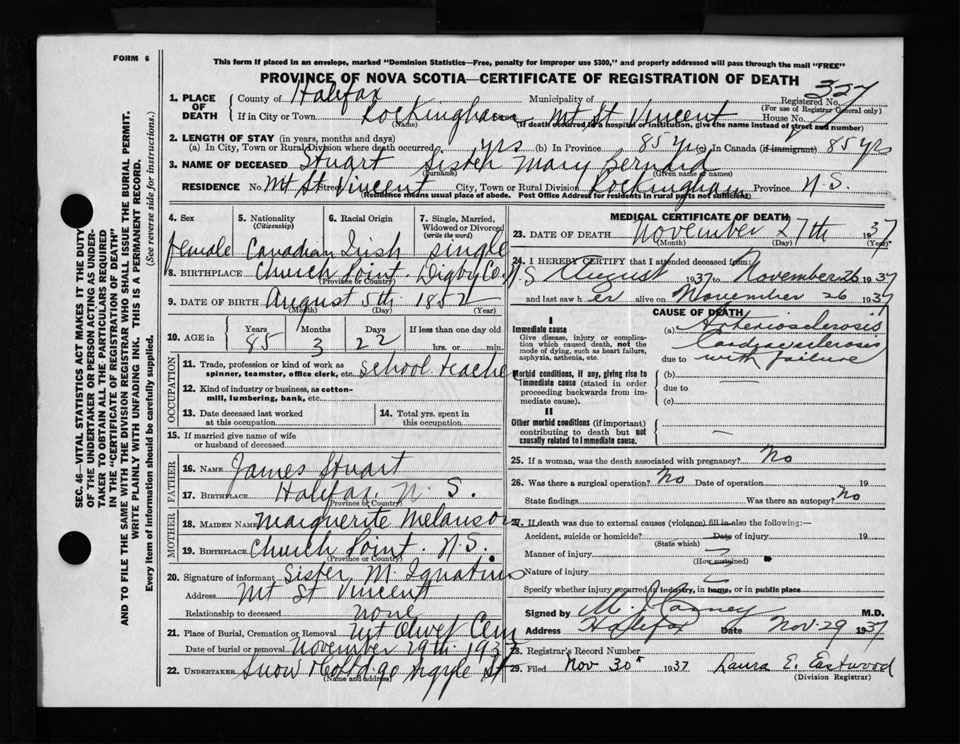 FORM 6
This form if placed in an envelope, marked "Dominion Statistics—Free, penalty for improper use $300," and properly addressed will pass through the mail "FREE"
PROVINCE OF NOVA SCOTIA—CERTIFICATE OF REGISTRATION OF DEATH
1. PLACE OF DEATH County of Halifax Municipality of Registered No. 327
(For use of Registrar General only)
If in City or Town Rockingham Mt St Vincent House No.
(Name) (If death occurred in a hospital or institution, give the name instead of street and number)
2. LENGTH OF STAY (in years, months and days)
(a) In City, Town or Rural Division where death occurred yrs (b) In Province 85 yrs (c) In Canada (if immigrant) 85 yrs
3. NAME OF DECEASED Stuart Sister Mary Bernard
(Surname) (Given name or names)
RESIDENCE No. Mt St Vincent City, Town or Rural Division Rockingham Province N.S.
(Residence means usual place of abode. Post Office Address for residents in rural parts not sufficient)
4. Sex 5. Nationality (Citizenship) 6. Racial Origin 7. Single, Married, Widowed or Divorced (write the word)
female Canadian Irish single
8. BIRTHPLACE Church Point. Digby Co. N.S
(Province or Country)
9. DATE OF BIRTH August 5th 1852
(Month) (Day) (Year)
10. AGE in Years Months Days If less than one day old
85 3 22 hrs. or min.
OCCUPATION
11. Trade, profession or kind of work as spinner, teamster, office clerk, etc. school teacher
12. Kind of industry or business, as cotton-mill, lumbering, bank, etc.
13. Date deceased last worked at this occupation
14. Total yrs. spent in this occupation
15. If married give name of wife or husband of deceased
FATHER
16. NAME James Stuart
17. BIRTHPLACE Halifax. N. S.
MOTHER
18. MAIDEN NAME Marguerite Melanson
19. BIRTHPLACE Church Point. N.S.
(Province or Country)
20. Signature of informant Sister M. Ignatius
Address Mt St Vincent
Relationship to deceased none
21. Place of Burial, Cremation or Removal Mt Olivet Cem
Date of burial or removal November 29th 1937
22. UNDERTAKER Snow & Co Ltd. 90 Argyle St
(Name and address)
MEDICAL CERTIFICATE OF DEATH
23. DATE OF DEATH November 27th 1937
(Month) (Day) (Year)
24. I HEREBY CERTIFY that I attended deceased from:
August 1937 to November 26 1937
and last saw her alive on November 26 1937
CAUSE OF DEATH
I
Immediate cause
Give disease, injury or complication which caused death, not the mode of dying, such as heart failure, asphyxia, asthenia, etc.
(a) Arteriosclerosis
Cardiac sclerosis
due to with failure
Morbid conditions, if any, giving rise to immediate cause (stated in order proceeding backwards from immediate cause).
(b) —
due to
(c)
II
Other morbid conditions (if important) contributing to death but not causally related to immediate cause. —
25. If a woman, was the death associated with pregnancy? No
26. Was there a surgical operation? No Date of operation 19
State findings Was there an autopsy? No
27. If death was due to external causes (violence) fill in also the following:
Accident, suicide or homicide? Date of injury 19
(State which)
Manner of injury
(How sustained)
Nature of injury
Specify whether injury occurred in industry, in home, or in public place
Signed by M. J. Carney M.D.
Address Halifax Date Nov. 29 1937
28. Registrar's Record Number
29. Filed Nov 30th 1937 Laura E. Eastwood
(Division Registrar)
SEC. 46—VITAL STATISTICS ACT MAKES IT THE DUTY
OF THE UNDERTAKER OR PERSON ACTING AS UNDER-
TAKER TO OBTAIN ALL THE PARTICULARS REQUIRED
IN THE "CERTIFICATE OF REGISTRATION OF DEATH"
AND TO FILE THE SAME WITH THE DIVISION REGISTRAR WHO SHALL ISSUE THE BURIAL PERMIT.
WRITE PLAINLY WITH UNFADING INK. THIS IS A PERMANENT RECORD.
Every item of information should be carefully supplied. (See reverse side for instructions.)